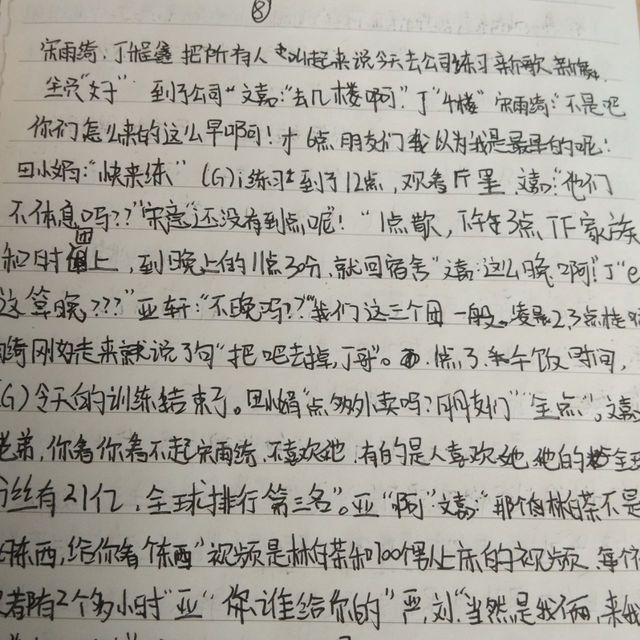 ⑧
宋雨绮、丁程鑫把所有人都叫起来说今天去公司练习新歌新舞。
全员"好" 到了公司"文嘉:"去几楼啊?"丁"4楼"宋雨绮:"不是吧
你们怎么来的这么早啊!才6点朋友们我以为我是最早的呢!
田小娟:"快来练" (G)i练习生到了12点,观看厅里 文嘉:"他们
不休息吗??"宋意"还没有到点呢!"1点散,下午3点TF家族
和时团上,到晚上的11点30分,就回宿舍"文嘉:这么晚啊!丁"e
这算晚???"亚轩:"不晚吗??"我们这三个团一般。凌晨2.3点
绮刚好走来就说了句"把吧去掉,丁哥"。1点了.午饭时间,
(G)今天的训练结束了。田小娟"点外卖吗?朋友们""全点"。文嘉
兄弟,你看你看不起宋雨绮,不喜欢她,有的是人喜欢她 她的全球
丝有21亿,全球排行第三名"。亚"啊"文嘉:"那个林白茶不是
东西,给你看个东西"视频是林白茶和100個人上床的视频 每个
都有2个多小时"亚"你谁给你的"严,刘"当然是我俩,来我